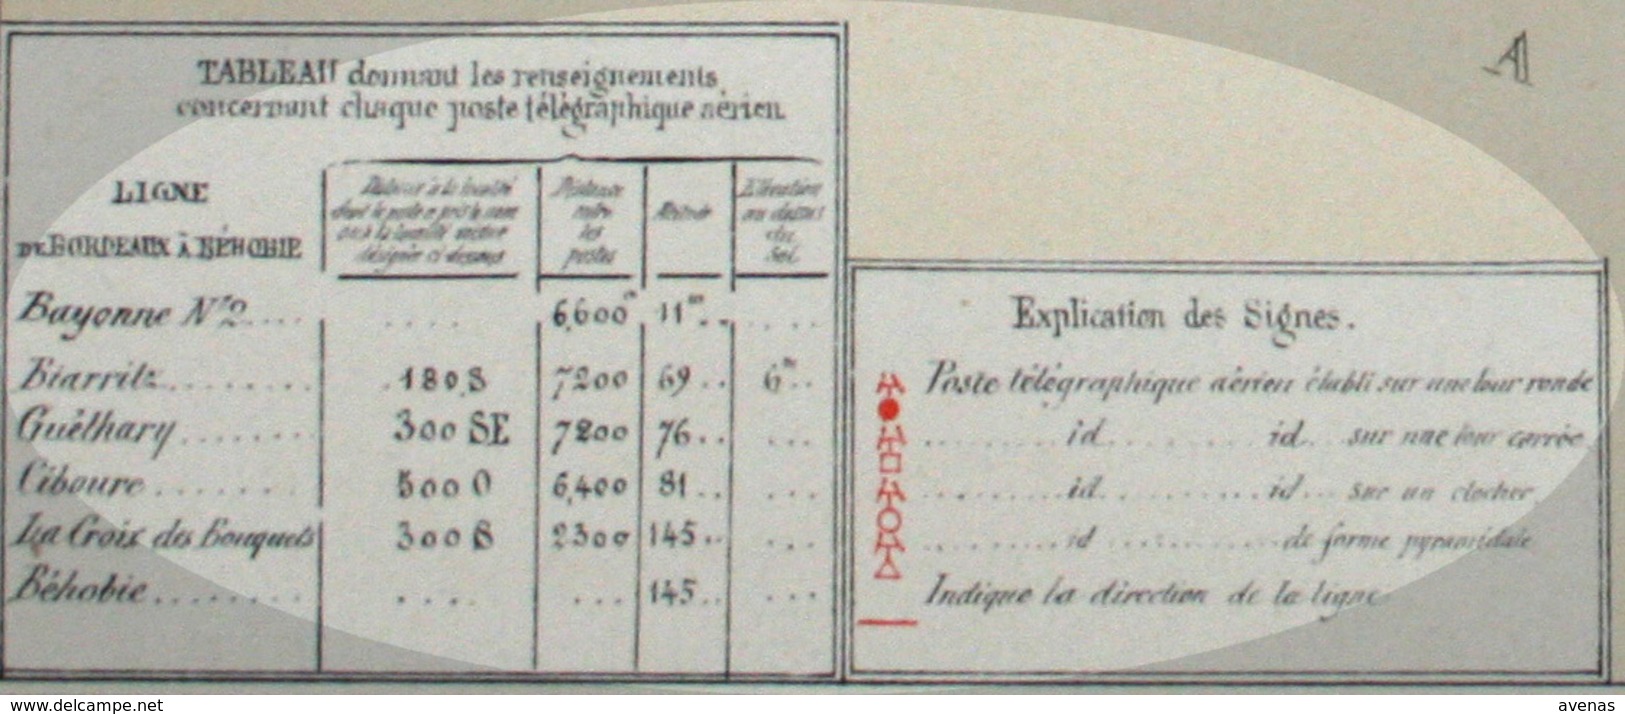 A
TABLEAU donnant les renseignements
concernant chaque poste télégraphique aérien
LIGNE
DE BORDEAUX À BÉHOBIE
Distance à la localité
dont le poste a pris le nom
ou à la localité
désignée ci-dessous
Distance
entre
les
postes
Altitude
Élévation
au dessus
du
Sol
Bayonne N° 2.... .... 6,600m 11m.. ....
Biarritz......... 180,S 7200 69.. 6m..
Guéthary....... 300 SE 7200 76.. ...
Ciboure........ 500 O 6,400 81.. ...
La Croix des Bouquets 300 S 2300 145.. ...
Béhobie......... .... ... 145.. ...
Explication des Signes.
Poste télégraphique aérien établi sur une tour ronde
.........id.........id...sur une tour carrée
.........id.........id...sur un clocher
.........id.........de forme pyramidale
Indique la direction de la ligne
www.delcampe.net
avenas